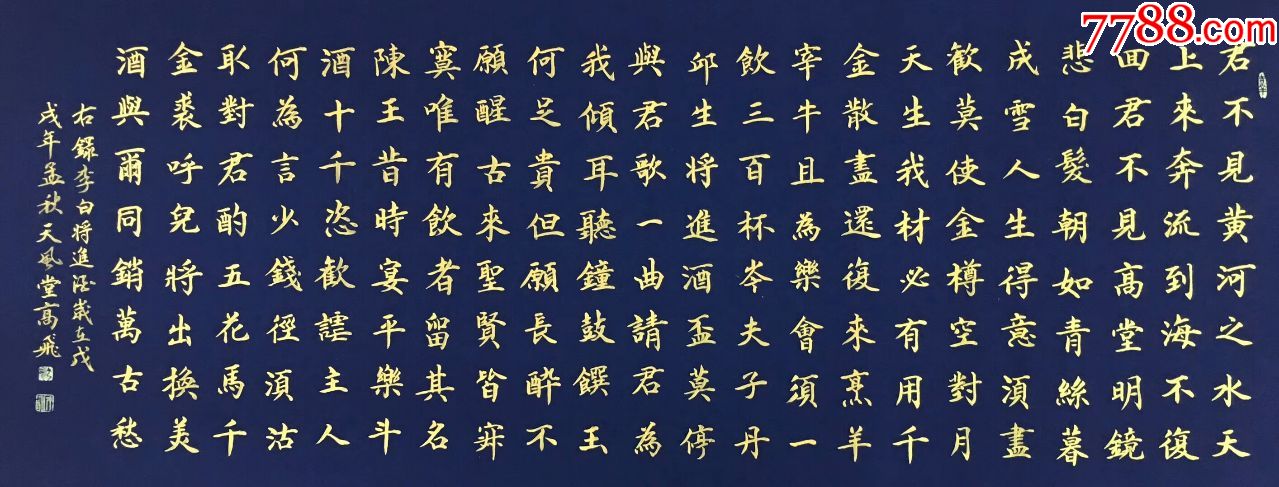 君不見黃河之水天
上來奔流到海不復
回君不見高堂明鏡
悲白髮朝如青絲暮
成雪人生得意須盡
歡莫使金樽空對月
天生我材必有用千
金散盡還復來烹羊
宰牛且為樂會須一
飲三百杯岑夫子丹
邱生將進酒盃莫停
與君歌一曲請君為
我傾耳聽鐘鼓饌玉
何足貴但願長醉不
願醒古來聖賢皆寂
寞唯有飲者留其名
陳王昔時宴平樂斗
酒十千恣歡謔主人
何為言少錢徑須沽
取對君酌五花馬千
金裘呼兒將出換美
酒與爾同銷萬古愁
右錄李白將進酒歲在戊
戌年孟秋天風堂高飛
7788.com
中国收藏热线